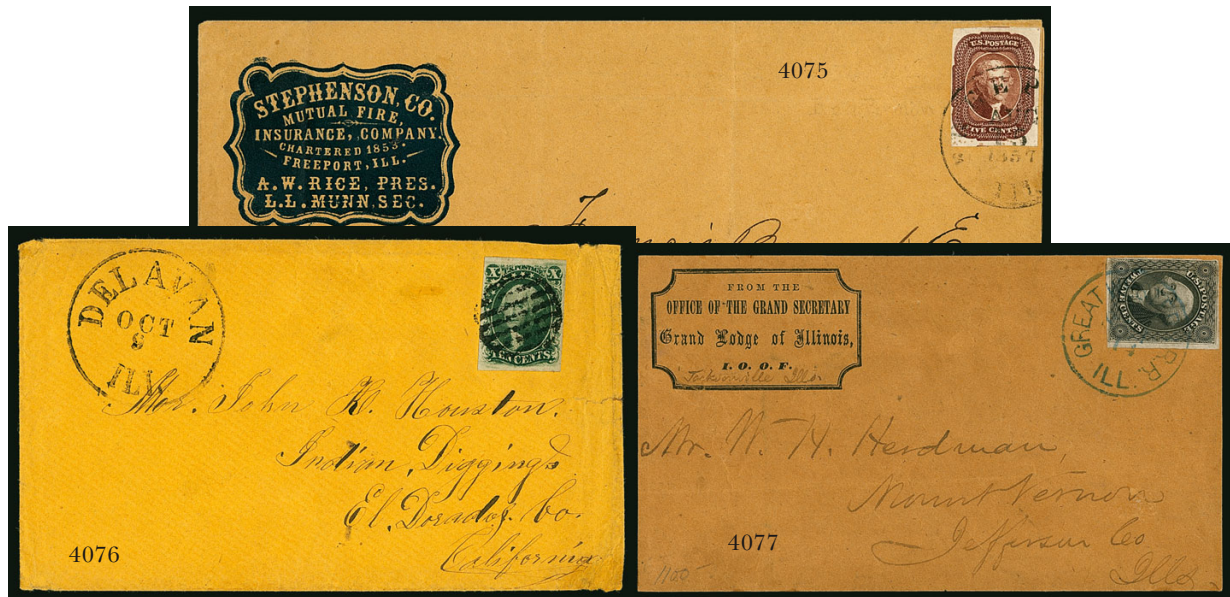 4075
STEPHENSON, CO.
MUTUAL FIRE,
INSURANCE, COMPANY.
CHARTERED 1853.
FREEPORT, ILL.
A. W. RICE, PRES.
L. L. MUNN, SEC.
U.S. POSTAGE
FIVE CENTS
1857
DELAVAN
OCT
8
ILL
X X
U.S. POSTAGE
TEN CENTS
Mr. John
Indian, Diggings
El. Dorado. Co.
California
4076
FROM THE
OFFICE OF THE GRAND SECRETARY
Grand Lodge of Illinois,
I. O. O. F.
U.S. POSTAGE
GREAT
R.R.
ILL.
Mr. W. H. Herdman,
Mount Vernon
Jefferson Co
Ills.
4077
1100